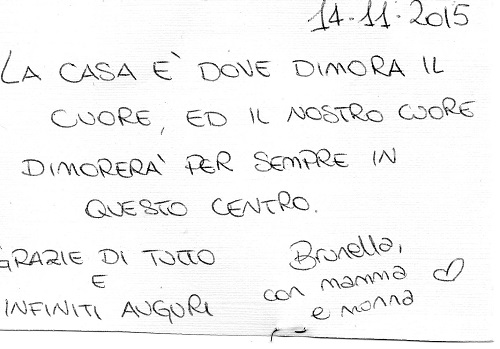 14-11-2015
LA CASA E' DOVE DIMORA IL
CUORE, ED IL NOSTRO CUORE
DIMORERA' PER SEMPRE IN
QUESTO CENTRO.
GRAZIE DI TUTTO
E
INFINITI AUGURI
Brunella,
con mamma
e nonna